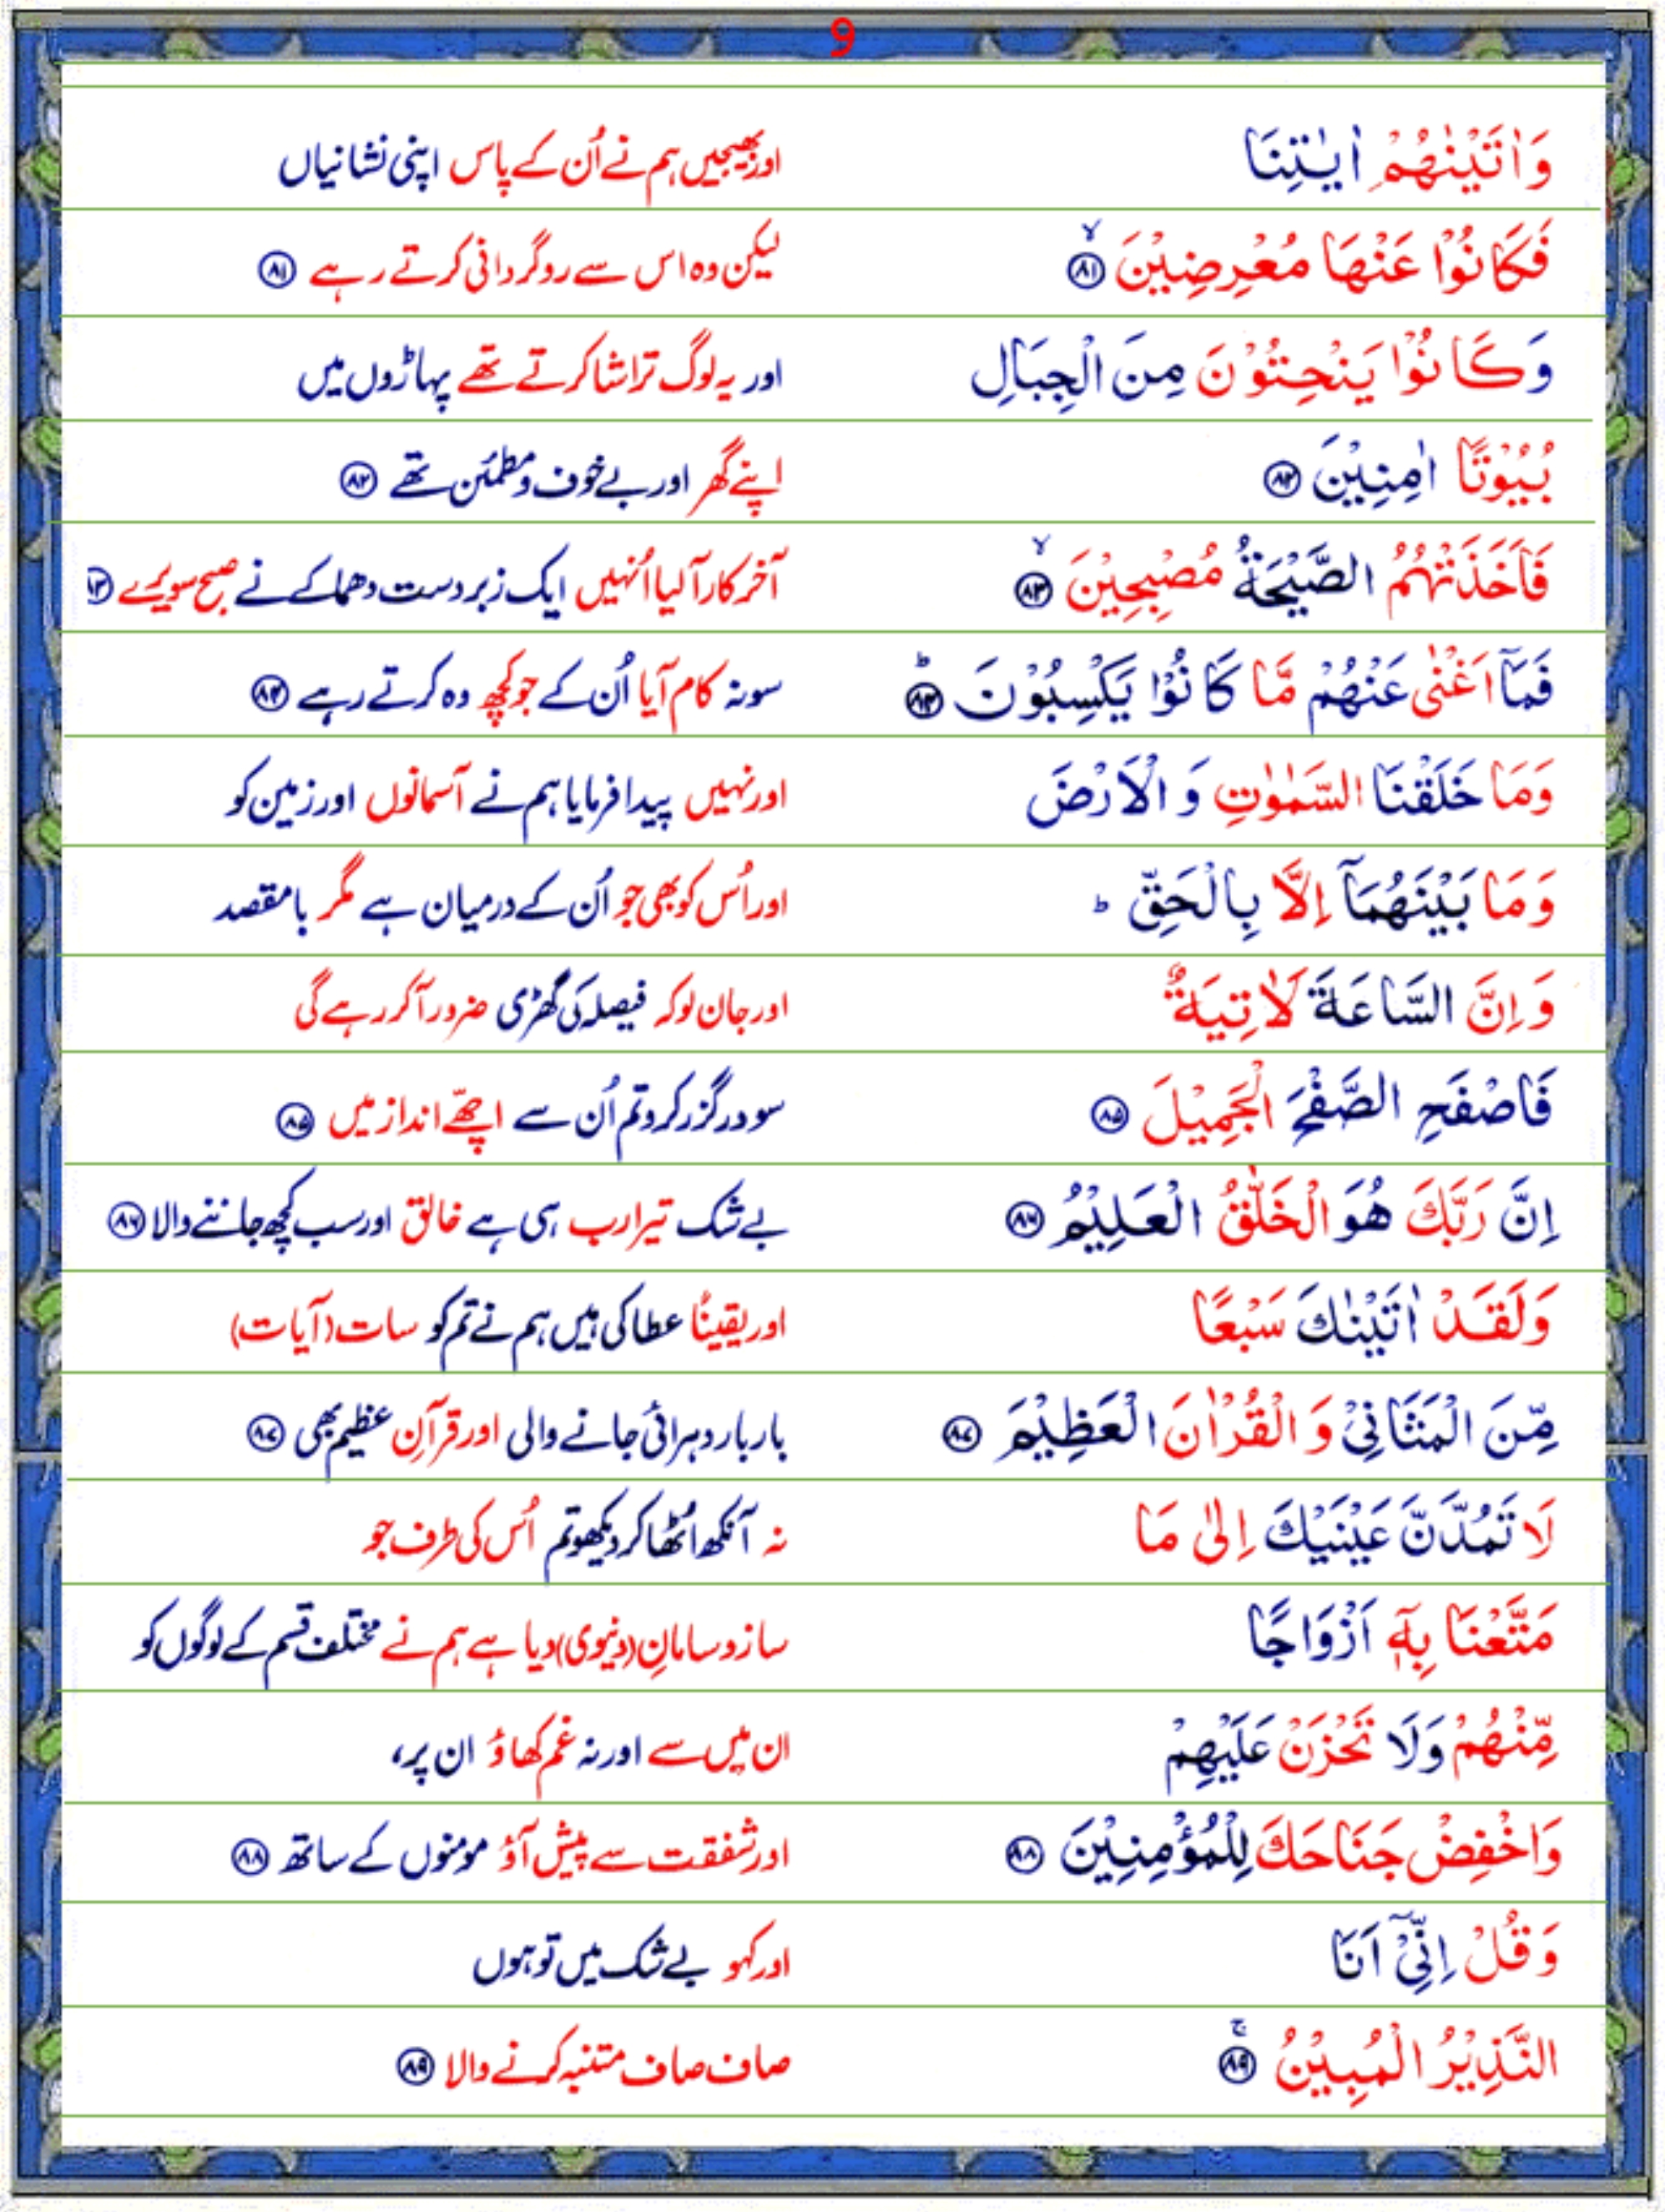 9
وَاٰتَيْنٰهُمْ اٰيٰتِنَا اور بھیجیں ہم نے اُن کے پاس اپنی نشانیاں
فَكَانُوْا عَنْهَا مُعْرِضِيْنَ ۙ ﴿۸۱﴾ لیکن وہ اس سے روگردانی کرتے رہے ﴿۸۱﴾
وَكَانُوْا يَنْحِتُوْنَ مِنَ الْجِبَالِ اور یہ لوگ تراشا کرتے تھے پہاڑوں میں
بُيُوْتًا اٰمِنِيْنَ ﴿۸۲﴾ اپنے گھر اور بے خوف و مطمئن تھے ﴿۸۲﴾
فَاَخَذَتْهُمُ الصَّيْحَةُ مُصْبِحِيْنَ ۙ ﴿۸۳﴾ آخر کار آ لیا اُنہیں ایک زبردست دھماکے نے صبح سویرے ﴿۸۳﴾
فَمَآ اَغْنٰى عَنْهُمْ مَّا كَانُوْا يَكْسِبُوْنَ ؕ ﴿۸۴﴾ سو نہ کام آیا اُن کے جو کچھ وہ کرتے رہے ﴿۸۴﴾
وَمَا خَلَقْنَا السَّمٰوٰتِ وَ الْاَرْضَ اور نہیں پیدا فرمایا ہم نے آسمانوں اور زمین کو
وَمَا بَيْنَهُمَآ اِلَّا بِالْحَقِّ ؕ اور اُس کو بھی جو اُن کے درمیان ہے مگر بامقصد
وَ اِنَّ السَّاعَةَ لَاٰتِيَةٌ اور جان لو کہ فیصلہ کی گھڑی ضرور آ کر رہے گی
فَاصْفَحِ الصَّفْحَ الْجَمِيْلَ ﴿۸۵﴾ سو درگزر کرو تم اُن سے اچھّے انداز میں ﴿۸۵﴾
اِنَّ رَبَّكَ هُوَ الْخَلّٰقُ الْعَلِيْمُ ﴿۸۶﴾ بے شک تیرا رب ہی ہے خالق اور سب کچھ جاننے والا ﴿۸۶﴾
وَلَقَدْ اٰتَيْنٰكَ سَبْعًا اور یقیناً عطا کی ہیں ہم نے تم کو سات (آیات)
مِّنَ الْمَثَانِيْ وَ الْقُرْاٰنَ الْعَظِيْمَ ﴿۸۷﴾ بار بار دہرائی جانے والی اور قرآنِ عظیم بھی ﴿۸۷﴾
لَا تَمُدَّنَّ عَيْنَيْكَ اِلٰى مَا نہ آنکھ اُٹھا کر دیکھو تم اُس کی طرف جو
مَتَّعْنَا بِهٖٓ اَزْوَاجًا ساز و سامانِ (دنیوی) دیا ہے ہم نے مختلف قسم کے لوگوں کو
مِّنْهُمْ وَلَا تَحْزَنْ عَلَيْهِمْ ان میں سے اور نہ غم کھاؤ ان پر،
وَاخْفِضْ جَنَاحَكَ لِلْمُؤْمِنِيْنَ ﴿۸۸﴾ اور شفقت سے پیش آؤ مومنوں کے ساتھ ﴿۸۸﴾
وَقُلْ اِنِّيْٓ اَنَا اور کہو بے شک میں تو ہوں
النَّذِيْرُ الْمُبِيْنُ ۚ ﴿۸۹﴾ صاف صاف متنبہ کرنے والا ﴿۸۹﴾